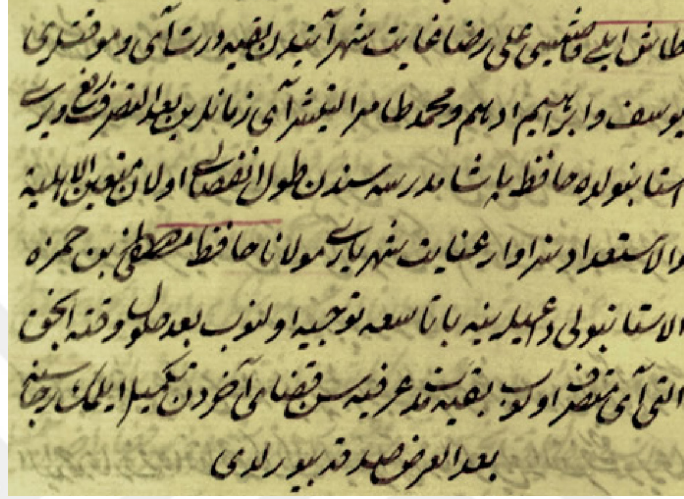 طاش ايلى قاضيسى على رضا غايت شهر آتيدن بقيه درت آى و موقتلرى
يوسف و ابراهيم ادهم و محمد طاهر التيشر آى زمانلرين بعد التصرف رفع ويرى
استانبولده حافظ پاشا مدرسه سندن طول انفصالى اولان متعين الاهلية
والاستعداد سزاوار عنايت شهريارى مولانا حافظ مصطفى بن حمزه
الاستانبولى داعيلرينه با تاسعه توجيه اولنوب بعد حلول وقته انجق
التى آى متصرف اولوب بقيه مدت عرفيه سن قضاى آخردن تكميل ايلمك رجاسنه
بعد العرض صدقه بيورلدى